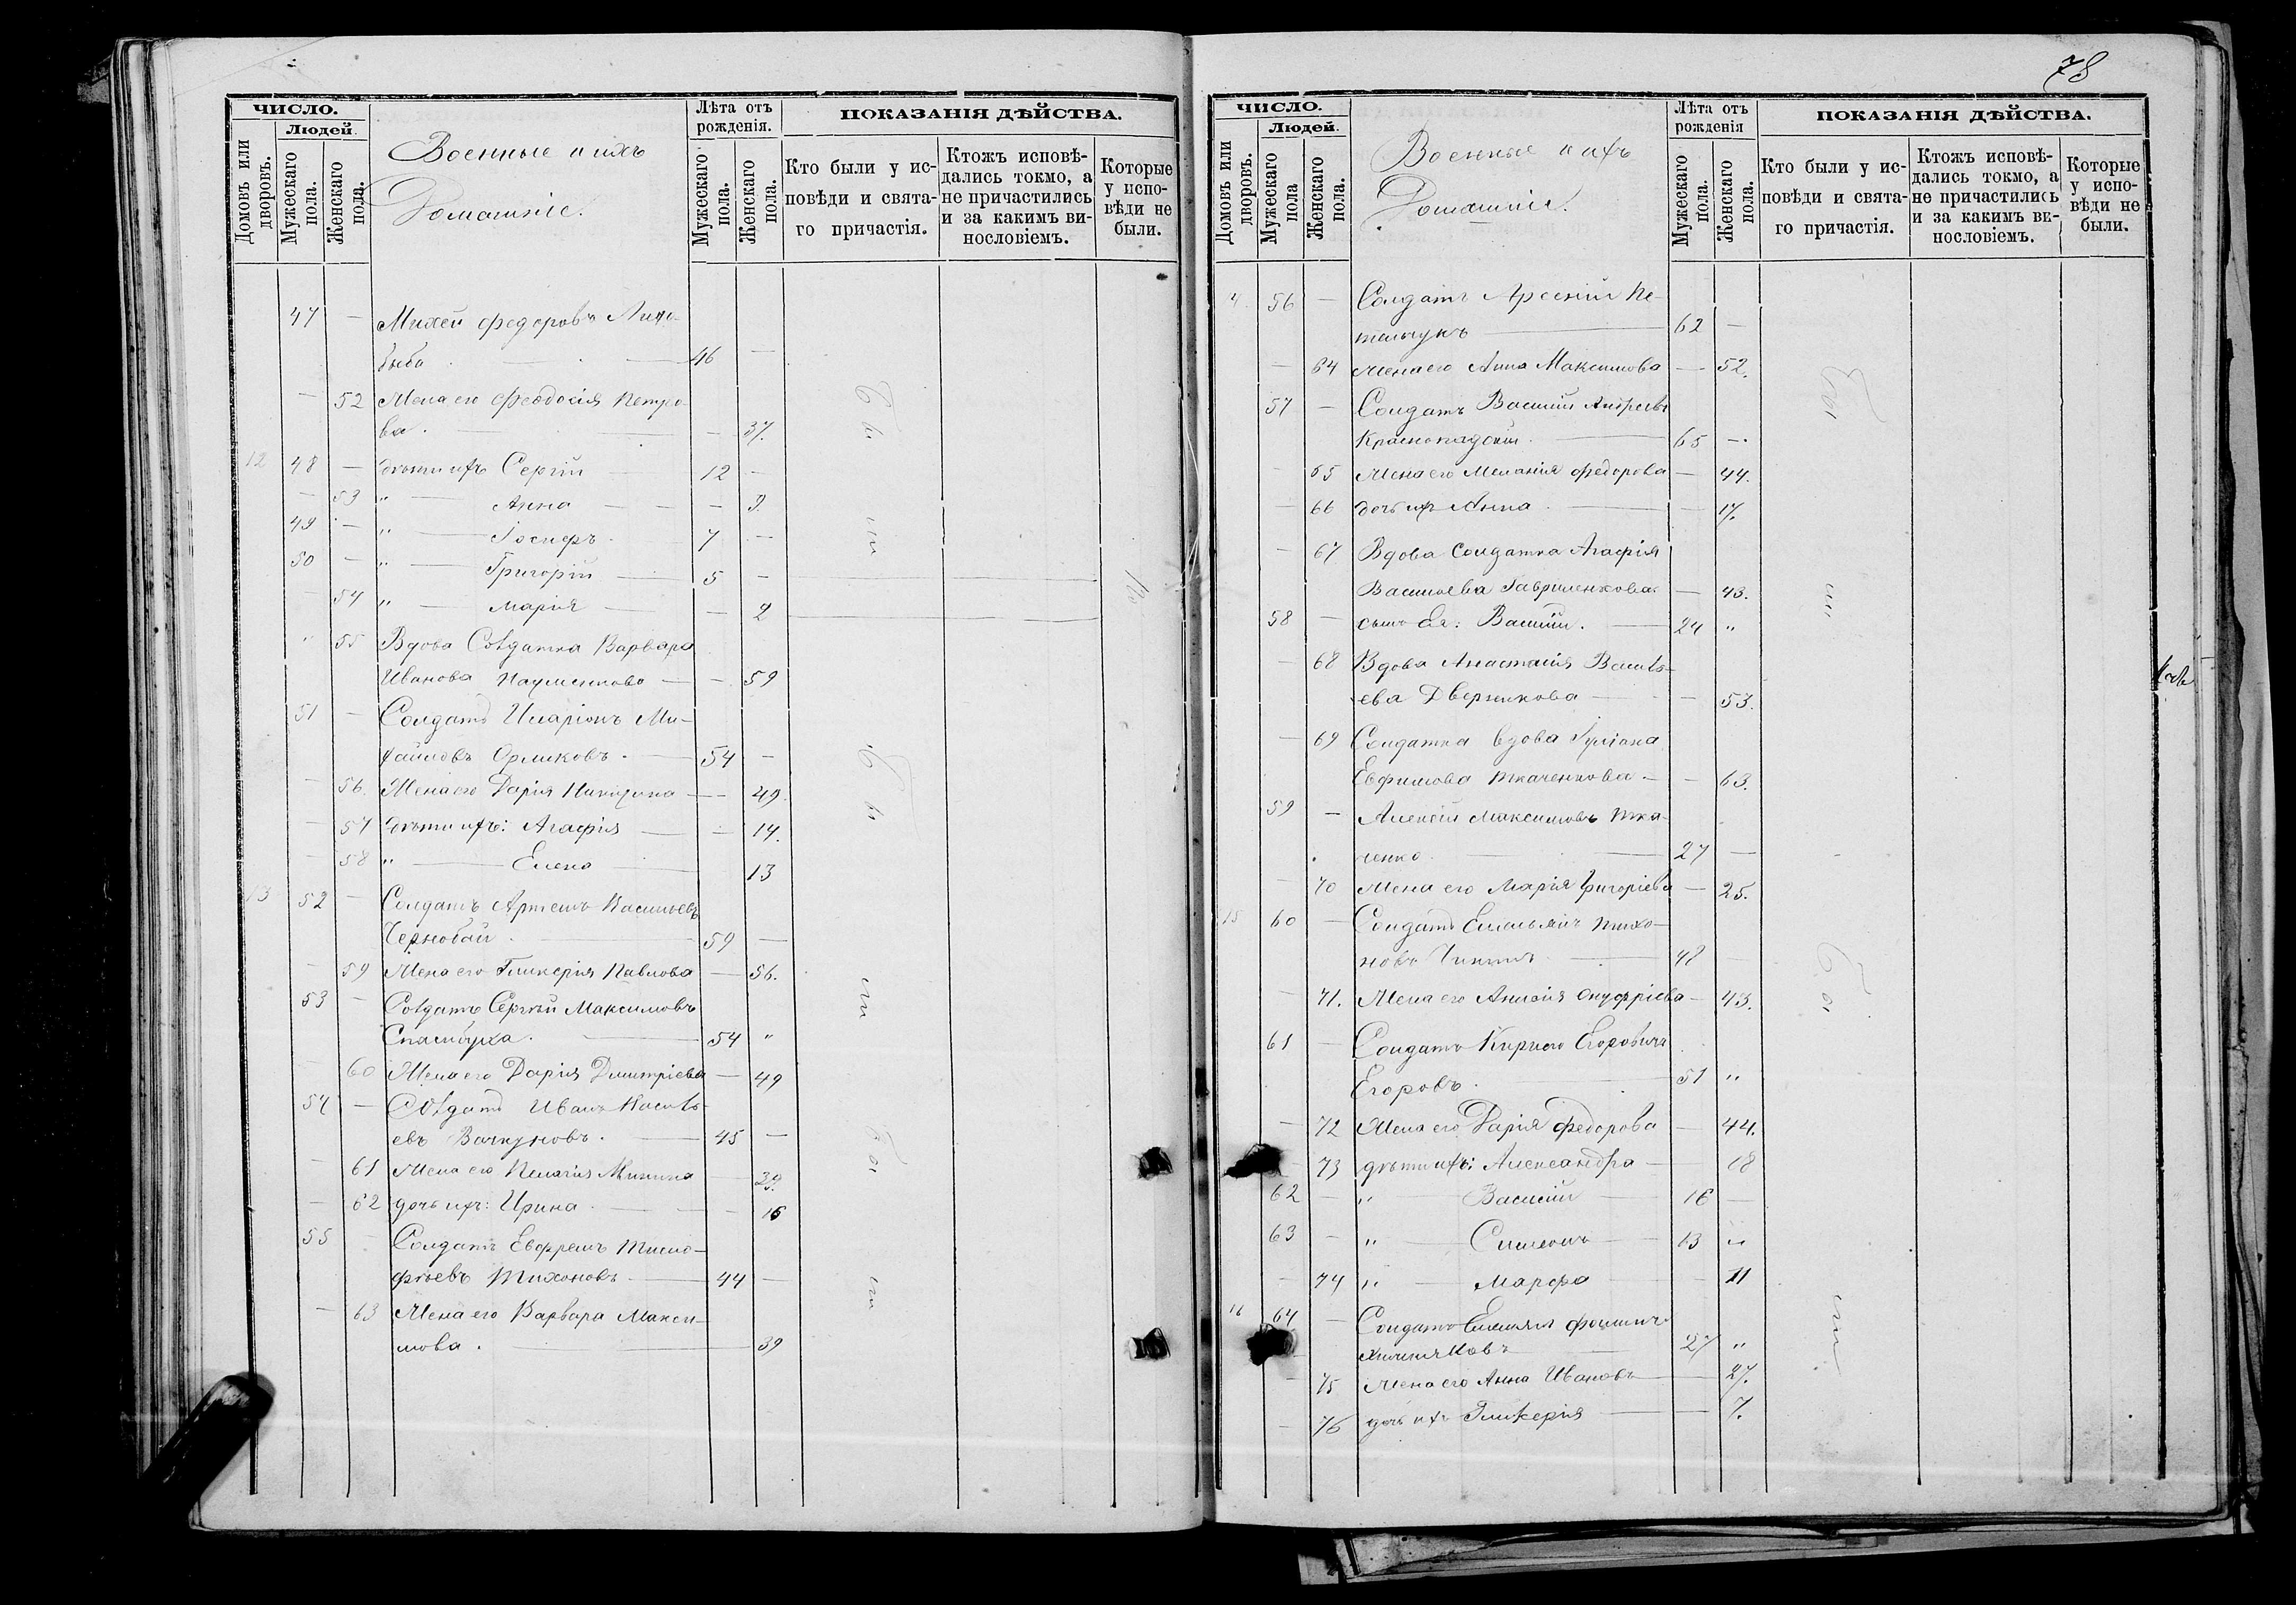 78
ЧИСЛО.
Людей.
Домовъ или дворовъ.
Мужескаго пола.
Женскаго пола.
Военные и ихъ
Домашніе.
Лѣта отъ рожденія.
Мужескаго пола.
Женскаго пола.
ПОКАЗАНІЯ ДѢЙСТВА.
Кто были у исповѣди и святаго причастія.
Ктожъ исповѣдались токмо, а не причастились и за какимъ винословіемъ.
Которые у исповѣди не были.
47 — Михей Федоровъ
46 —
— 52 Жена его Феодосія Петро-
ва. — 37.
12 48 — дѣти ихъ Сергій 12 —
— 53 " — Анна — —
49 — " — Іосифъ 7 —
50 — " — Григорій — 5 —
— 54 " — Марія — — 2
" 55 Вдова Солдатка Варвара
Иванова Науменкова — — 59
51 — Солдатъ Иларіонъ Ми-
хайловъ Орликовъ. — 54 —
— 56. Жена его Дарія Никитина — — 49
— 57 дѣти ихъ: Агафія — — 14.
— 58 " — Елена — 13
13 52 — Солдатъ Артемъ Васильевъ
Чернобай. — 59 —
— 59 Жена его Гликерія Павлова — 56.
53 — Солдатъ Сергѣй Максимовъ
54 "
60 Жена его Дарія Дмитріева — 49
54 — Солдатъ Иванъ Василь-
евъ 45 —
— 61 Жена его Пелагія Минина — 39.
— 62 дочь ихъ: Ирина. — — 16
55 — Солдатъ Ефремъ Тимо-
фѣевъ Тихоновъ — 44 —
— 63 Жена его Варвара Макси-
мова. — 39
Бы
ли
Бы
ли
Бы
ли
ЧИСЛО.
Людей.
Домовъ или дворовъ.
Мужескаго пола
Женскаго пола.
Военные и ихъ
Домашніе.
Лѣта отъ рожденія
Мужескаго пола.
Женскаго пола.
ПОКАЗАНІЯ ДѢЙСТВА.
Кто были у исповѣди и святаго причастія.
Ктожъ исповѣдались токмо, а не причастились и за какимъ винословіемъ.
Которые у исповѣди не были.
56 — Солдатъ Арсеній Пе-
62 —
— 64 Жена его Анна Максимова — 52.
57 — Солдатъ Василій Андреевъ
65 —
— 65 Жена его Меланія Федорова — 44.
— 66 дочь ихъ Анна — — 17.
— 67 Вдова Солдатка Агафія
Васильева Гавриленкова — 43.
58 — сынъ ея: Василій. — 24 "
— 68 Вдова Анастасія Василь-
ева — 53.
— 69 Солдатка вдова Іуліана
Евфимова Ткаченкова — — 63.
59 — Алексій Максимовъ Тка-
ченко 27 —
— 70 Жена его Марія Григоріева — 25.
15 60 — Солдатъ Емельянъ Тихо-
новъ 48
— 71. Жена его Анисія Онуфріева — 43.
61 — Солдатъ Кирило Егоровичъ
Егоровъ. — 51 "
— 72 Жена его Дарія Федорова — 44.
— 73 дѣти ихъ: Александра — 18
62 — " Василій — 16 —
63 — " — Симеонъ — 13 "
— 74 " — Марфа — 11
16 64 — Солдатъ
27 "
— 75 Жена его Анна Иванова — 27.
— 76 дочь ихъ Гликерія — — 7.
Бы
ли
Бы
ли